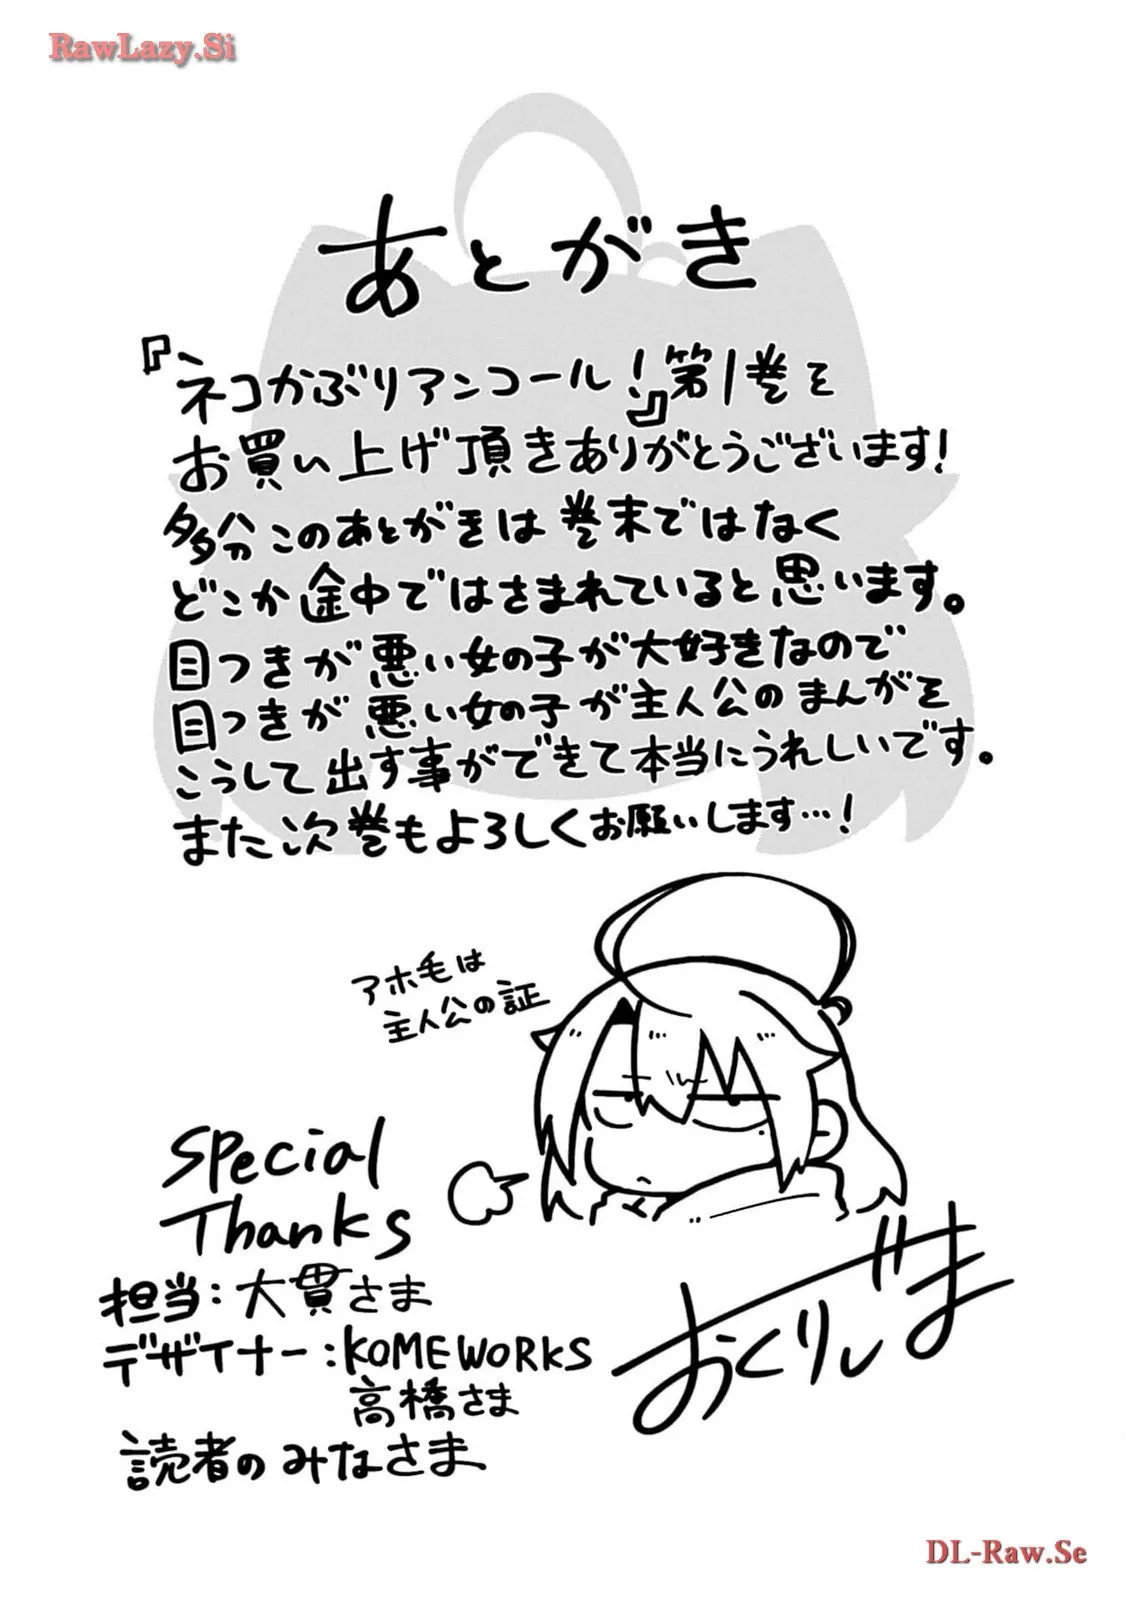 RawLazy.Si
あとがき
『ネコかぶりアンコール!』第1巻を
お買い上げ頂きありがとうございます!
多分このあとがきは巻末ではなく
どこか途中ではさまれていると思います。
目つきが悪い女の子が大好きなので
目つきが悪い女の子が主人公のまんがを
こうして出す事ができて本当にうれしいです。
また次巻もよろしくお願いします…!
アホ毛は
主人公の証
Special
Thanks
担当:大貫さま
デザイナー:KOMEWORKS
高橋さま
読者のみなさま
おくりじま
DL-Raw.Se